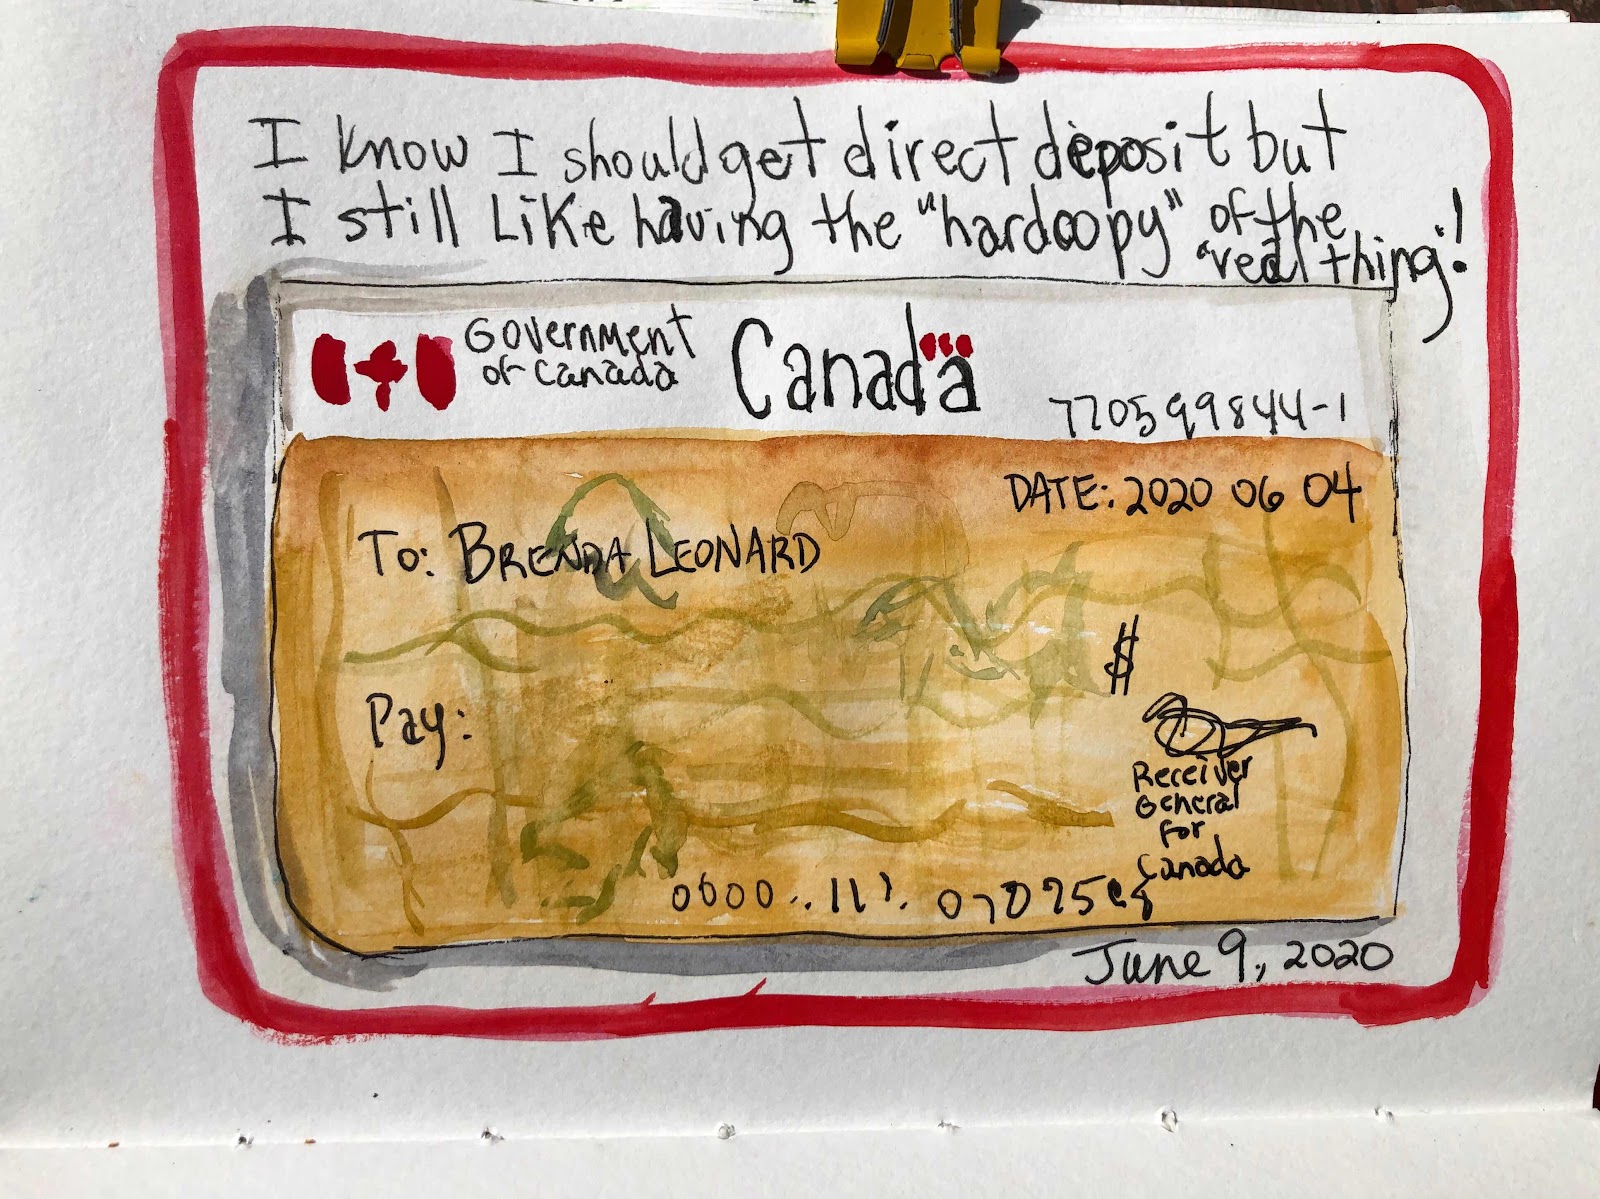 I know I should get direct deposit but
I still like having the "hardcopy" of the
"real thing"!
Government
of Canada
Canada
770599844-1
DATE: 2020 06 04
To: BRENDA LEONARD
$
Pay:
Receiver
General
for
Canada
June 9, 2020